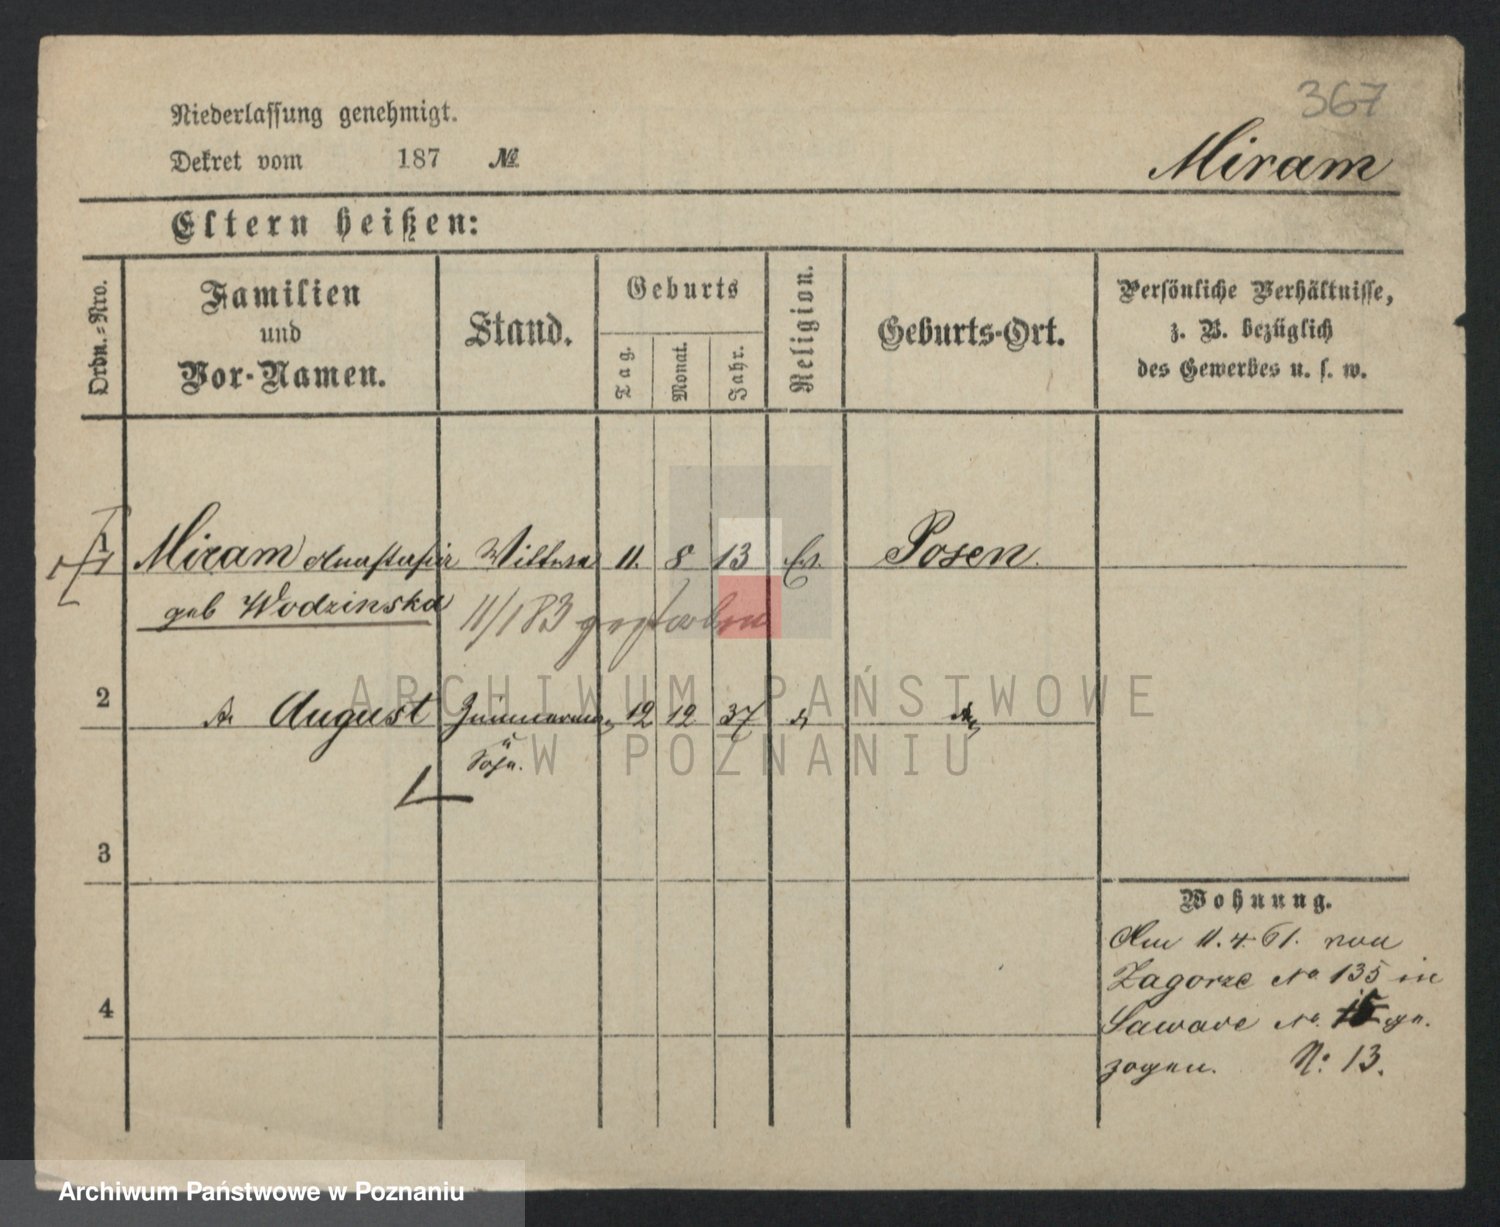 367
Niederlassung genehmigt.
Dekret vom 187 №
Miram
Eltern heißen:
Ordn.=Nro.
Familien
und
Vor-Namen.
Stand.
Geburts
Tag.
Monat.
Jahr.
Religion.
Geburts-Ort.
Persönliche Verhältnisse,
z. B. bezüglich
des Gewerbes u. s. w.
1 Miram Anastasia Wittwe 11. 8 13 Posen.
geb Wodzinska
11/1 83 gestorben
2 August 12 12 37
Sohn.
3
4
Wohnung.
Am 11. 4. 61. von
Zagorze No 135 in
Sawade No. 15 ge.
zogen. No 13.
ARCHIWUM PAŃSTWOWE
W POZNANIU
Archiwum Państwowe w Poznaniu